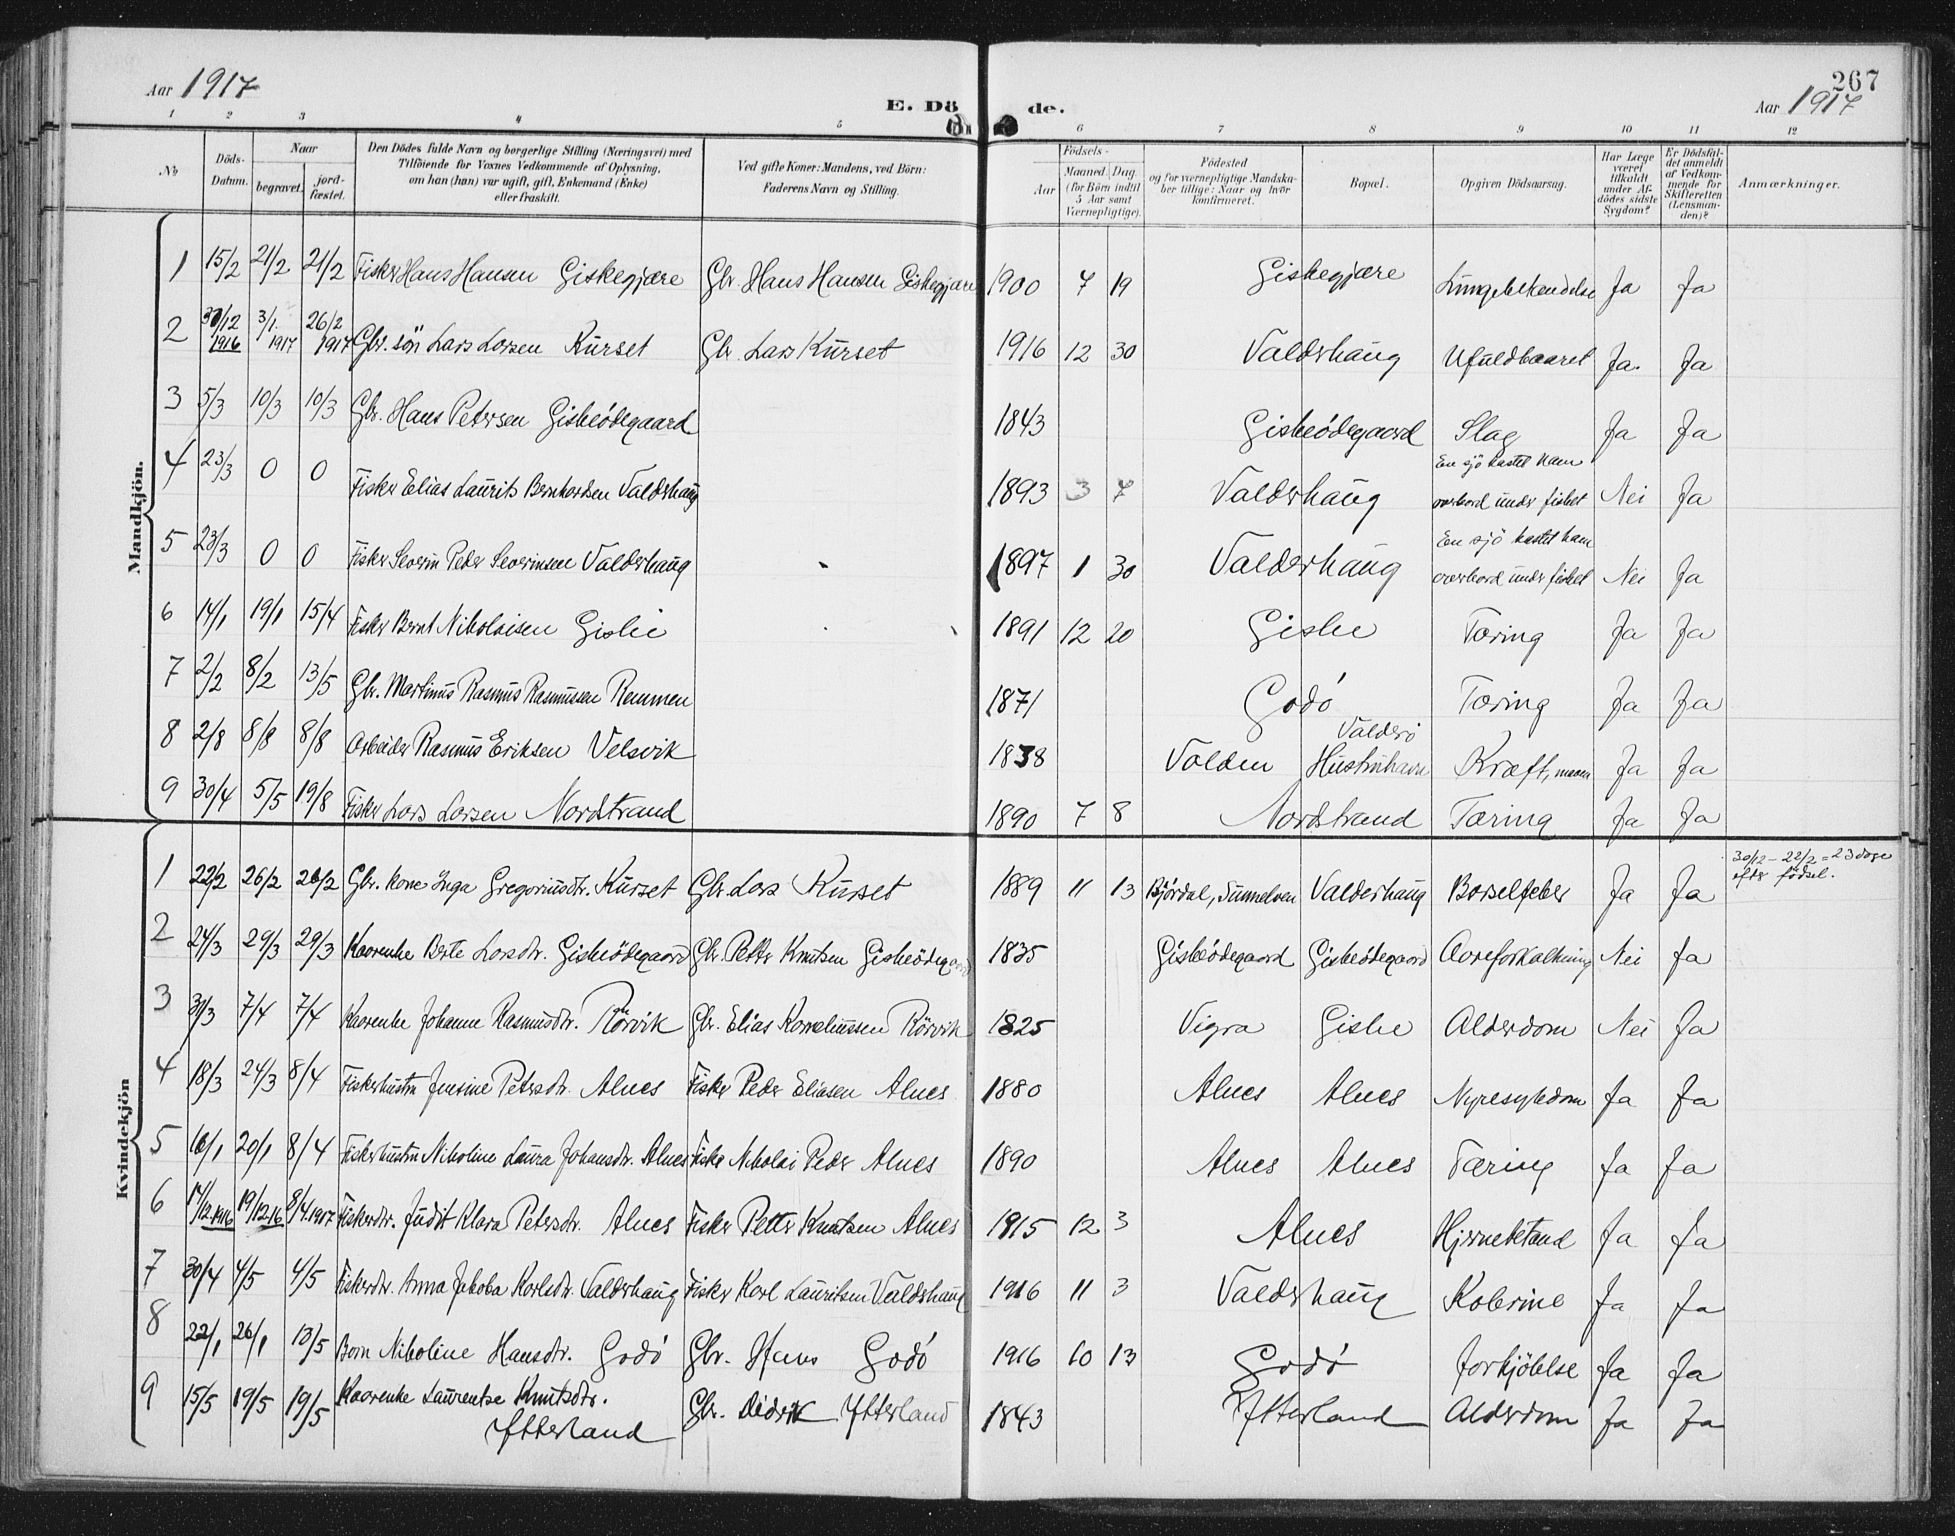 Aar 1917
E. Dö de.
267
Aar 1917
1 2 3 4 5 6 7 8 9 10 11 12
No
Döds-Datum.
Naar
begravet.
jord-fæstet.
Den Dödes fulde Navn og borgerlige Stilling (Næringsvei) med
Tilföiende for Voxnes Vedkommende af Oplysning,
om han (hun) var ugift, gift, Enkemand (Enke)
eller fraskilt.
Ved gifte Koner: Mandens, ved Börn:
Faderens Navn og Stilling.
Födsels-
Aar
Maaned. Dag.
(for Börn indtil
5 Aar samt
Værnepligtige).
Födested
og for værnepligtige Mandska-
ber tillige: Naar og hvor
konfirmeret.
Bopæl.
Opgiven Dödsaarsag.
Har Læge
været
tilkaldt
under Af-
dödes sidste
Sygdom?
Er Dödsfal-
det anmeldt
af Vedkom-
mende for
Skifteretten
(Lensman-
den)?
Anmærkninger.
Mandkjön.
1 15/2 21/2 21/2 Fisker Hans Hansen Giskegjære Gbr. Hans Hansen Giskegjære 1900 7 19 Giskegjære Lungebetændelse Ja Ja
2 30/12 1916 3/1 1917 26/2 1917 Gbr. sön Lars Larsen Kurset Gbr. Lars Kurset 1916 12 30 Valderhaug Ufuldbaaret Ja. Ja
3 5/3 10/3 10/3 Gbr. Hans Petersen Giskeödegaard 1843 Giskeödegaard Slag Ja Ja
4 23/3 0 0 Fisker Elias Laurits Bernhardsen Valderhaug 1893 3 7 Valderhaug En sjö kastet ham
overbord under fisket Nei Ja
5 23/3 0 0 Fisker Severin Peder Severinsen Valderhaug 1897 1 30 Valderhaug En sjö kastet ham
overbord under fisket Nei Ja
6 14/1 19/1 15/4 Fisker Bernt Nikolaisen Giske 1891 12 20 Giske Tæring Ja Ja
7 2/2 8/2 13/5 Gbr. Martinus Rasmus Rasmussen Remmen 1871 Godö Tæring Ja Ja
8 2/8 8/8 8/8 Arbeider Rasmus Eriksen Velsvik 1838 Volden Valderö
Hustruhavn Kræft, maven Ja Ja
9 30/4 5/5 19/8 Fisker Lars Larsen Nordstrand 1890 7 8 Nordstrand Tæring Ja Ja
Kvindekjön
1 22/2 26/2 26/2 Gbr. kone Inga Gregoriusdtr. Kurset Gbr. Lars Kurset 1889 11 13 Björdal, Sunnelven Valderhaug Barselfeber Ja Ja 30/12 – 22/2 = 23 dage
efter födsel.
2 24/3 29/3 29/3 Kaarenke Berte Larsdtr. Giskeödegaard Gbr. Petter Knutsen Giskeödegaard 1835 Giskeödegaard Giskeödegaard Aareforkalkning Nei Ja
3 31/3 7/4 7/4 Kaarenke Johanne Rasmusdtr. Rörvik Gbr. Elias Korneliussen Rörvik 1825 Vigra Giske Alderdom Nei Ja
4 18/3 24/3 8/4 Fiskerhustru Jensine Petersdtr. Alnes Fisker Peder Eliasen Alnes 1880 Alnes Alnes Nyresykdom Ja Ja
5 16/1 20/1 8/4 Fiskerhustru Nikoline Laura Johansdtr. Alnes Fisker Nikolai Peder Alnes 1890 Alnes Alnes Tæring Ja Ja
6 17/12.1916 19/12.16 8/4.1917 Fiskerdtr. Judit Klara Petersdtr. Alnes Fisker Petter Knutsen Alnes 1915 12 3 Alnes Hjernebetænd Ja Ja
7 30/4 4/5 4/5 Fiskerdtr. Anna Jakoba Karlsdtr. Valderhaug Fisker Karl Lauritsen Valderhaug 1916 11 3 Valderhaug Kolerine Ja Ja
8 22/1 26/1 13/5 Barn Nikoline Hansdtr. Godö Gbr. Hans Godö 1916 10 13 Godö Forkjölelse Ja Ja
9 15/5 19/5 19/5 Kaarenke Laurentse Knutsdtr.
Ytterland Gbr. Didrik Ytterland 1843 Ytterland Alderdom Ja Ja